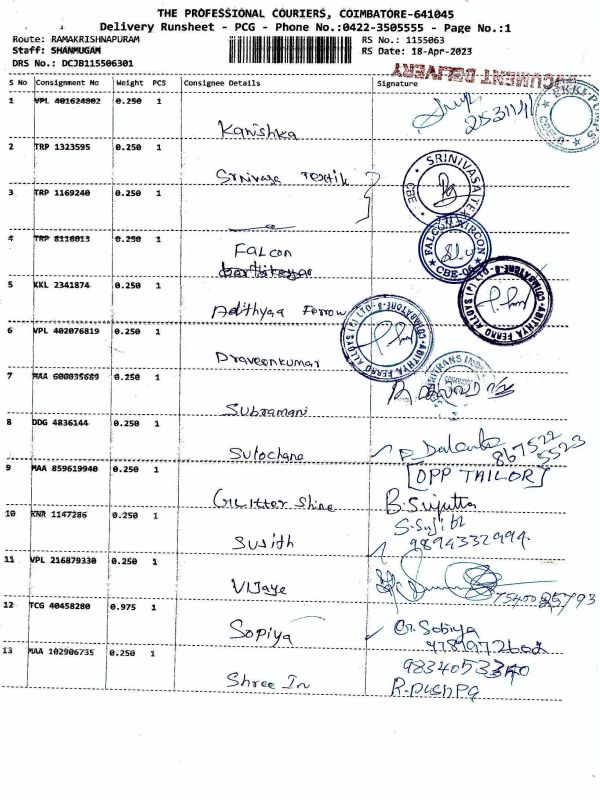 THE PROFESSIONAL COURIERS, COIMBATORE-641045
Delivery Runsheet - PCG - Phone No.:0422-3505555 - Page No.:1
Route: RAMAKRISHNAPURAM RS No.: 1155063
Staff: SHANMUGAM RS Date: 18-Apr-2023
DRS No.: DCJB115506301
DOCUMENT DELIVERY
S No Consignment No Weight PCS Consignee Details Signature
1 VPL 401624802 0.250 1
Kanishka
2 TRP 1323595 0.250 1
Srnivasa Textile
SRINIVASA TEX
CBE
3 TRP 1169240 0.250 1
4 TRP 8116013 0.250 1
Falcon
FALCON AIRCON
CBE-06
5 KKL 2341874 0.250 1
Adithyaa Ferrow
6 VPL 402076819 0.250 1
Praveenkumar
7 MAA 600035689 0.250 1
Subramani
8 DDG 4836144 0.250 1
Sulochana
867522
5523
9 MAA 859619940 0.250 1
[OPP TAILOR]
Glitter Shine
10 KNR 1147286 0.250 1
Sujith
S. Sujith
9894332994
11 VPL 216879330 0.250 1
Vijaye
7540025793
12 TCG 40458280 0.975 1
Sopiya
G. Sobiya
13 MAA 102906735 0.250 1
Shree In
R. Pushpa